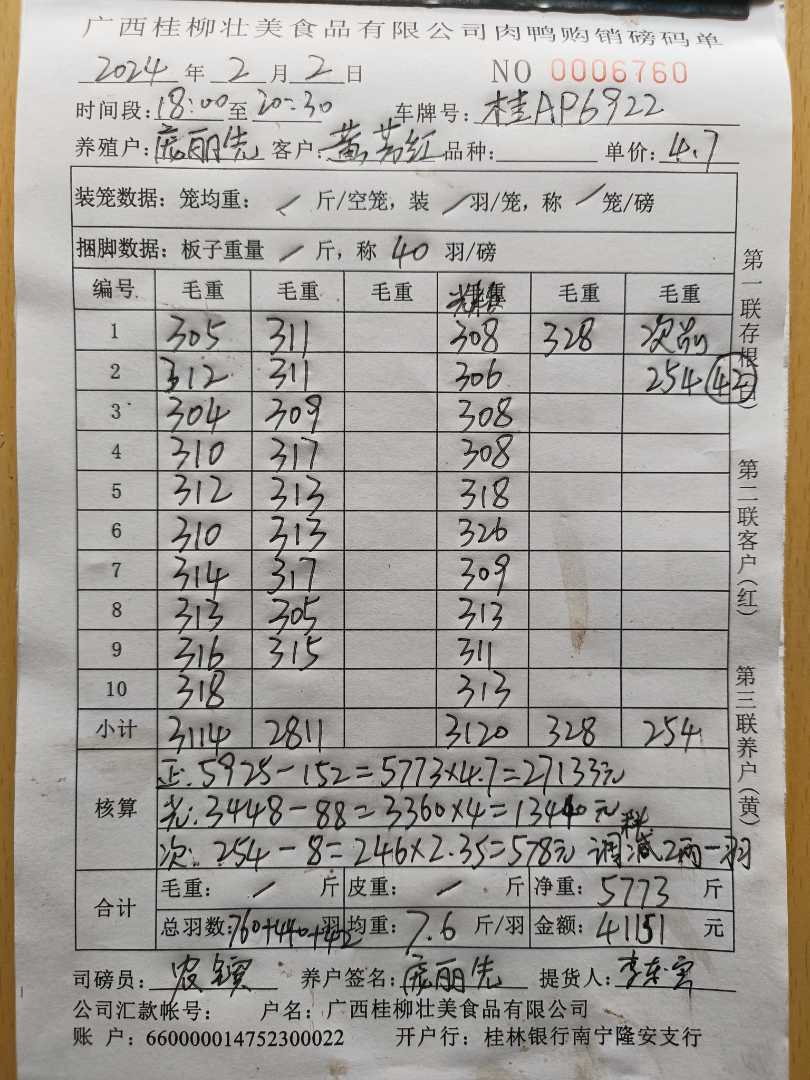 广西桂柳壮美食品有限公司肉鸭购销磅码单
2024 年 2 月 2 日 NO 0006760
时间段:18:00至20:30 车牌号:桂AP6922
养殖户:庞丽先 客户:黄芳红 品种: 单价:4.7
装笼数据:笼均重: / 斤/空笼,装 / 羽/笼,称 / 笼/磅
捆脚数据:板子重量 / 斤,称 40 羽/磅
编号 毛重 毛重 毛重 毛重 毛重
1 305 311 308 328 次品
2 312 311 306 254 42
3 304 309 308
4 310 317 308
5 312 313 318
6 310 313 326
7 314 317 309
8 313 305 313
9 316 315 311
10 318 313
小计 3114 2811 3120 328 254
核算
正:5925-152=5773×4.7=27133元
光:3448-88=3360×4=13440元
次:254-8=246×2.35=578元 调减2两一羽
合计
毛重: / 斤 皮重: / 斤 净重:5773 斤
总羽数:760+440+42 羽 均重:7.6 斤/羽 金额:41151 元
司磅员: 养户签名:庞丽先 提货人:
公司汇款帐号: 户名:广西桂柳壮美食品有限公司
账 户:660000014752300022 开户行:桂林银行南宁隆安支行
第一联存根(白)
第二联客户(红)
第三联养户(黄)